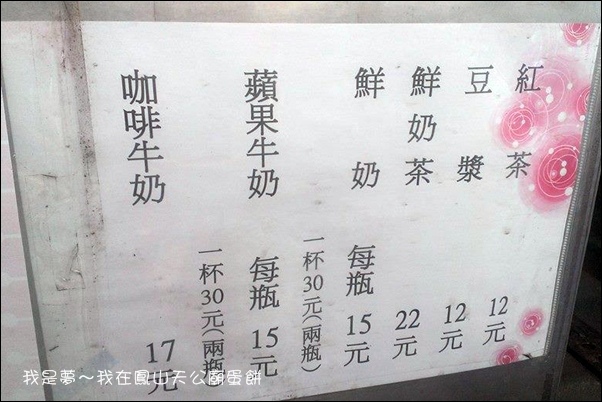 紅茶 12元
豆漿 12元
鮮奶茶 22元
鮮奶 每瓶15元
一杯30元(兩瓶)
蘋果牛奶 每瓶15元
一杯30元(兩瓶)
咖啡牛奶 17元
我是夢～我在鳳山天公廟蛋餅